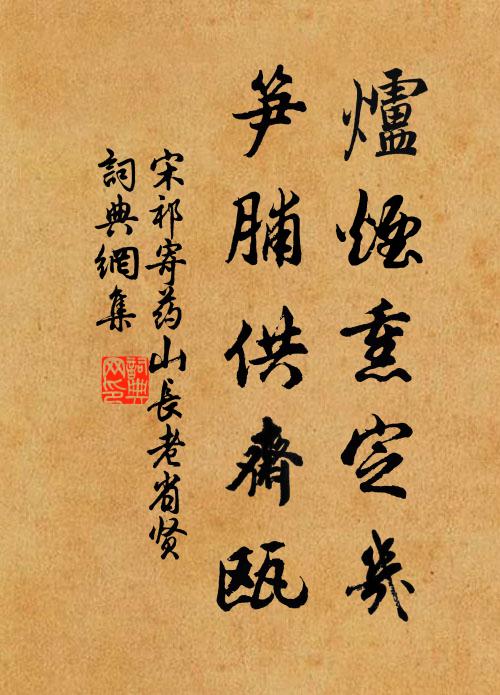 爐煙熏定幾
笋脯供齋甌
宋祁寄药山長老省贤
詞典網集
詞典网印